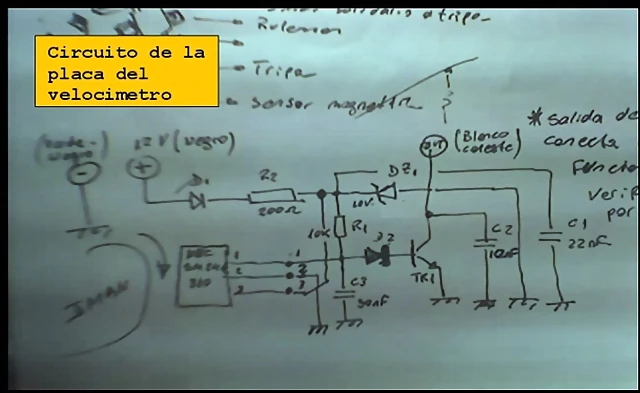 Circuito de la
placa del
velocimetro
Rulemon
Tripa
Sensor magnetica
* Salida de
conecta
Funcio
Verif
por
(verde-
negro)
12 V (negro)
(Blanco
celeste)
OUT
D1
R2
200Ω
DZ1
10V
R1
10K
D2
TR1
C2
10nF
C1
22nF
C3
50nF
1
2
3
1
2
3
IMAN